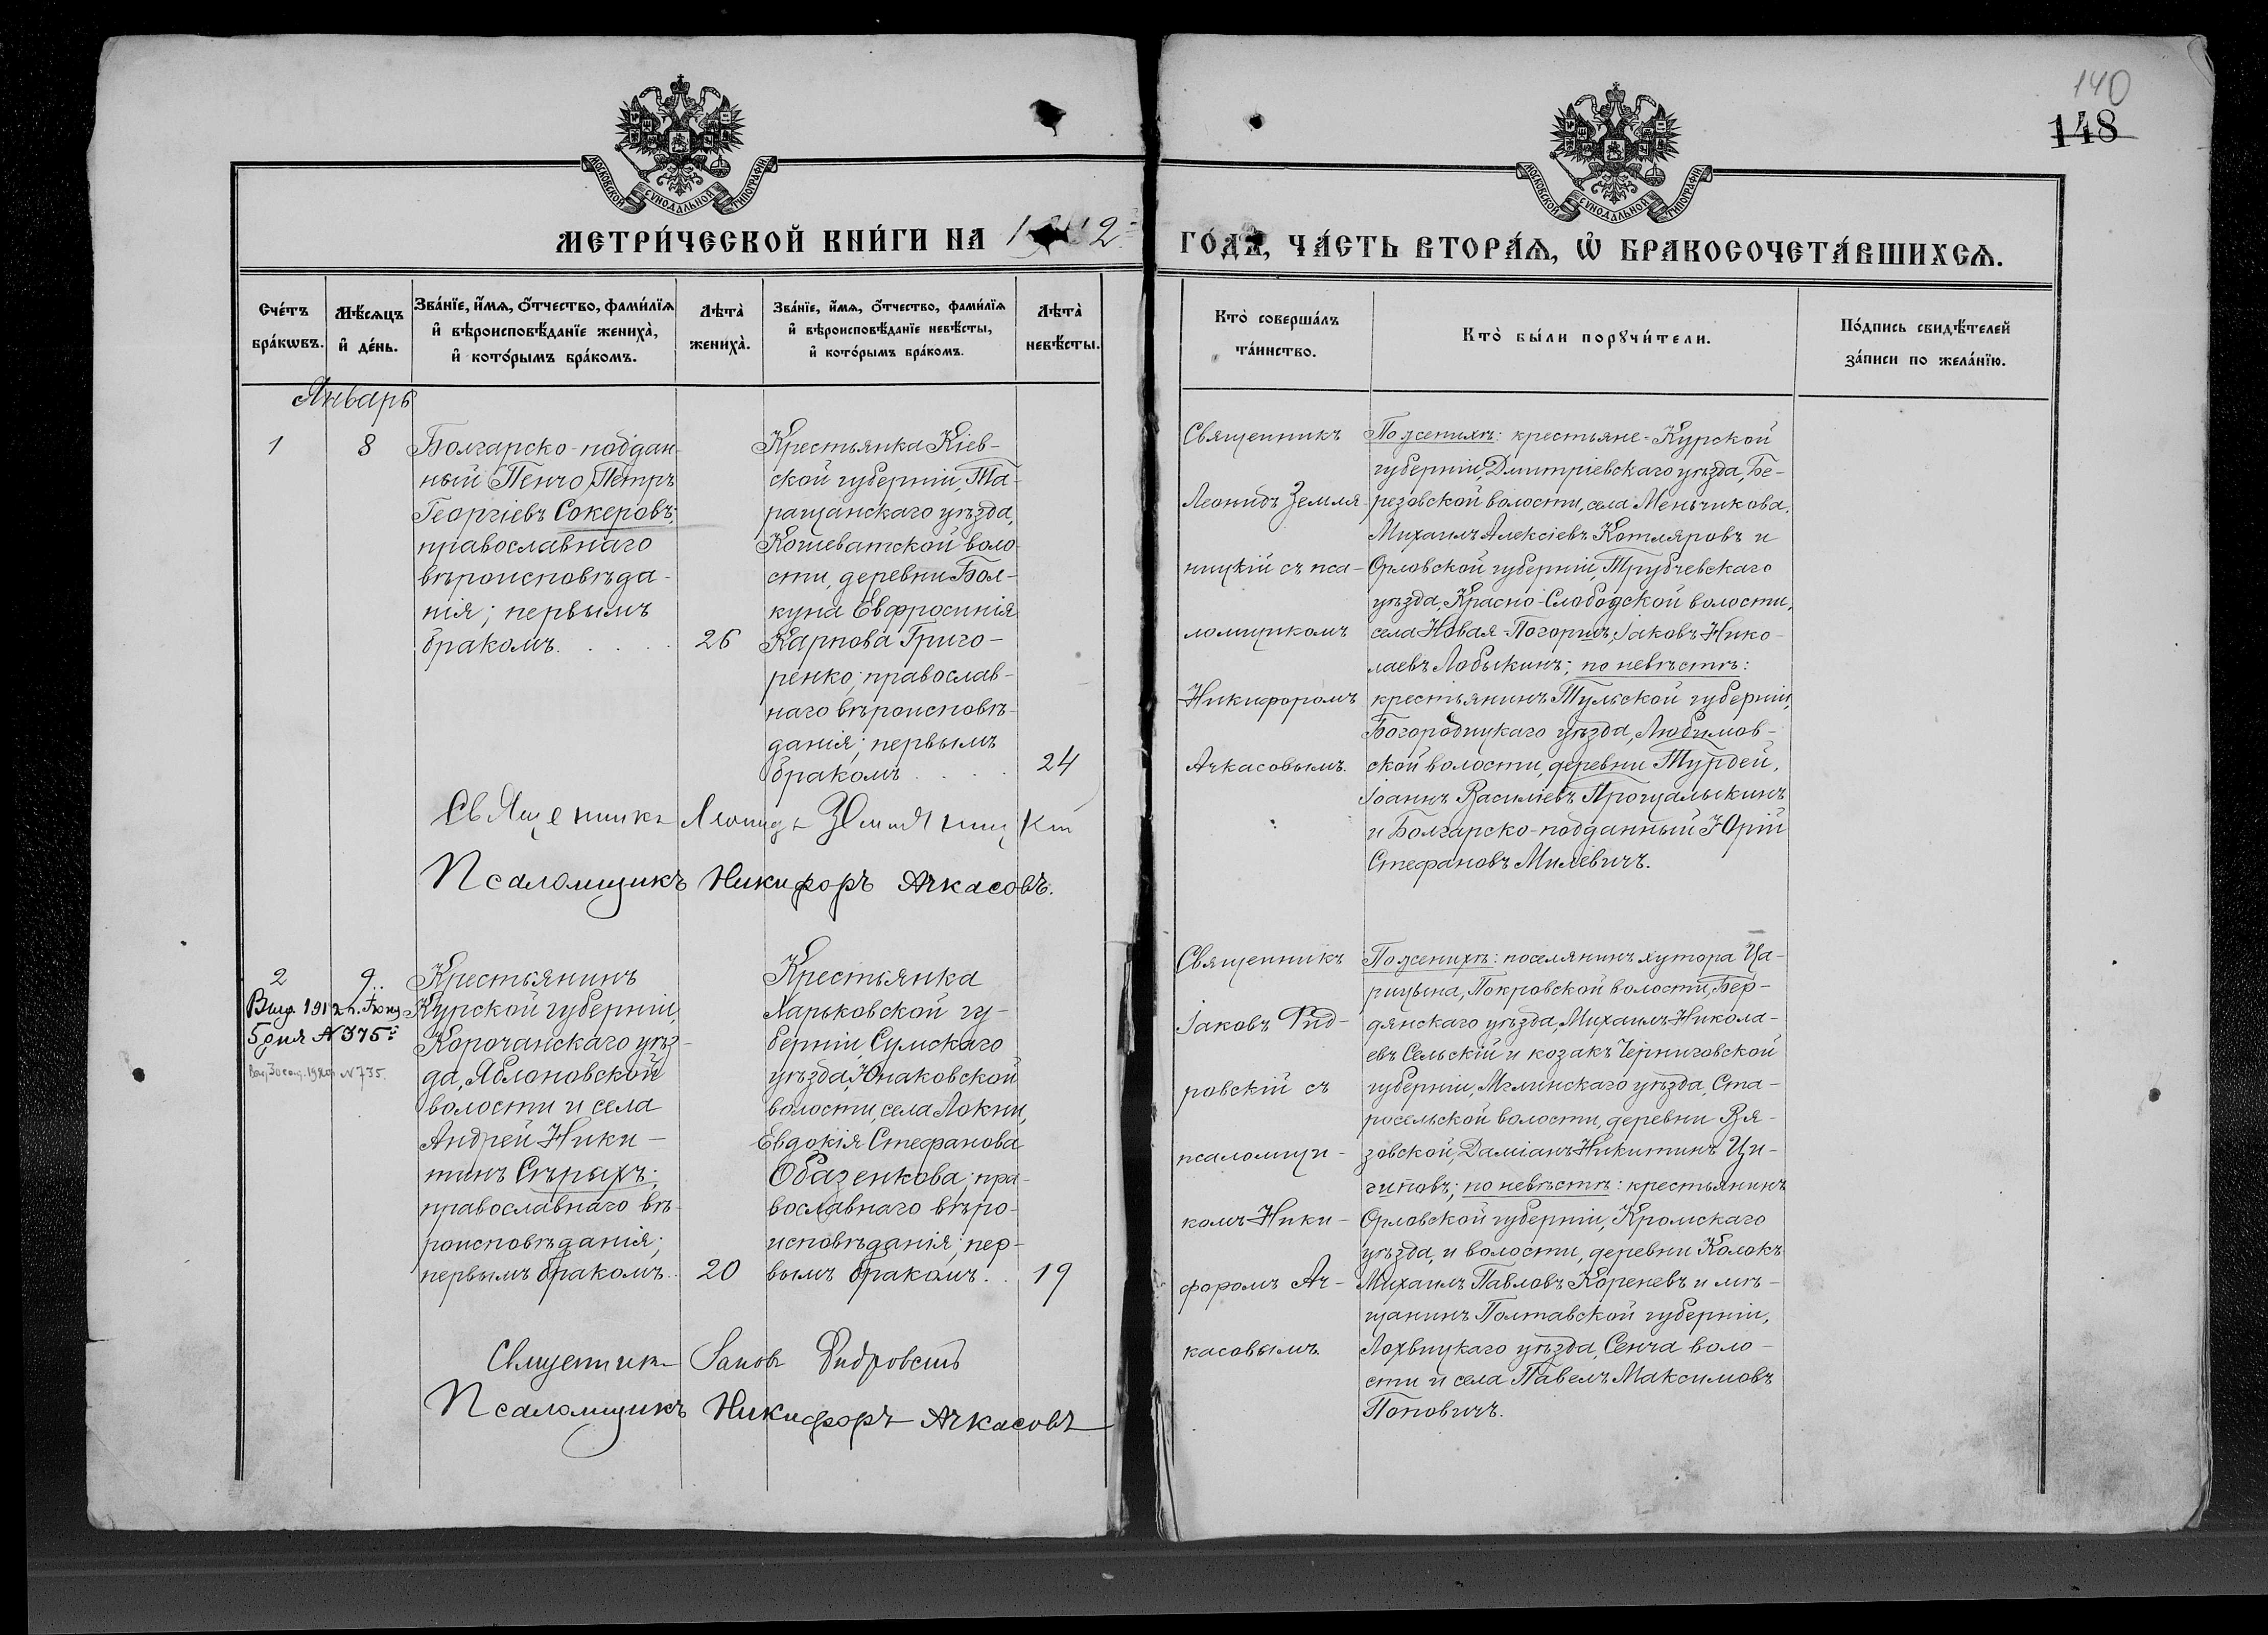 140
148
МОСКОВСКОЙ СѴНОДАЛЬНОЙ ТИПОГРАФІИ
МОСКОВСКОЙ СѴНОДАЛЬНОЙ ТИПОГРАФІИ
МЕТРИ́ЧЕСКОЙ КНИ́ГИ НА 1912 ГО́ДЪ, ЧА́СТЬ ВТОРА́Ѧ, Ѡ҆ БРАКОСОЧЕТА́ВШИХСѦ.
Сче́тъ бра́кѡвъ.
Мѣ́сѧцъ и҆ де́нь.
Зва́нїе, и҆́мѧ, ѻ҆́тчество, фами́лїѧ и҆ вѣроисповѣ́данїе жениха̀, и҆ кото́рымъ бра́комъ.
Лѣта̀ жениха̀.
Зва́нїе, и҆́мѧ, ѻ҆́тчество, фами́лїѧ и҆ вѣроисповѣ́данїе невѣ́сты, и҆ кото́рымъ бра́комъ.
Лѣта̀ невѣ́сты.
Кто̀ соверша́лъ та́инство.
Кто̀ бы́ли порꙋчи́тели.
По́дпись свидѣ́телей за́писи по жела́нїю.
Январь
1
8
Болгарско-поддан-
ный Пенчо, Петръ
Георгіевъ Сокеровъ;
православнаго
вѣроисповѣда-
нія; первымъ
бракомъ.
26
Крестьянка Кіев-
ской губерніи, Та-
ращанскаго уѣзда,
Кошеватской воло-
сти, деревни Бол-
куна Евфросинія
Карпова Григо-
ренко; православ-
наго вѣроисповѣ-
данія; первымъ
бракомъ
24
Священникъ
Леонидъ Земля-
ницкій съ пса-
ломщикомъ
Никифоромъ
Ачкасовымъ.
По женихѣ: крестьяне - Курской
губерніи, Дмитріевскаго уѣзда, Бе-
резовской волости, села Меньчикова,
Михаилъ Алексіевъ Котляровъ и
Орловской губерніи, Трубчевскаго
уѣзда, Красно-Слободской волости,
села Новая-Погорщь, Іаковъ Нико-
лаевъ Лобыкинъ; по невѣстѣ:
крестьянинъ Тульской губерніи,
Богородицкаго уѣзда, Любимов-
ской волости, деревни Турдей,
Іоаннъ Василіевъ Прощалыкинъ
и Болгарско-подданный Юрій
Стефановъ Милевичъ.
Священникъ Леонидъ Земляницкій
Псаломщикъ Никифоръ Ачкасовъ.
2
9
Выд. 1912 г. Іюня
5 дня № 375
№ 735
Крестьянинъ
Курской губерніи,
Корочанскаго уѣз-
да, Яблоновской
волости и села
Андрей Ники-
тинъ Сѣрыхъ;
православнаго вѣ-
роисповѣданія;
первымъ бракомъ.
20
Крестьянка
Харьковской гу-
берніи, Сумскаго
уѣзда, Юнаковской
волости, села Локни,
Евдокія Стефанова
Обазенкова; пра-
вославнаго вѣро-
исповѣданія; пер-
вымъ бракомъ.
19
Священникъ
Іаковъ Дид-
ровскій съ
псаломщи-
комъ Ники-
форомъ Ач-
касовымъ.
По женихѣ: поселянинъ хутора Ца-
рицына, Покровской волости, Бер-
дянскаго уѣзда, Михаилъ Никола-
евъ Сельскій и козакъ Черниговской
губерніи, Мглинскаго уѣзда, Ста-
росельской волости, деревни Вя-
зовской, Даміанъ Никитинъ Ци-
гиповъ; по невѣстѣ: крестьянинъ
Орловской губерніи, Кромскаго
уѣзда, и волости, деревни Колокъ
Михаилъ Павловъ Кореневъ и мѣ-
щанинъ Полтавской губерніи,
Лохвицкаго уѣзда, Сенча воло-
сти и села Павелъ Максимовъ
Поповичъ.
Священникъ Іаковъ Дидровскій
Псаломщикъ Никифоръ Ачкасовъ